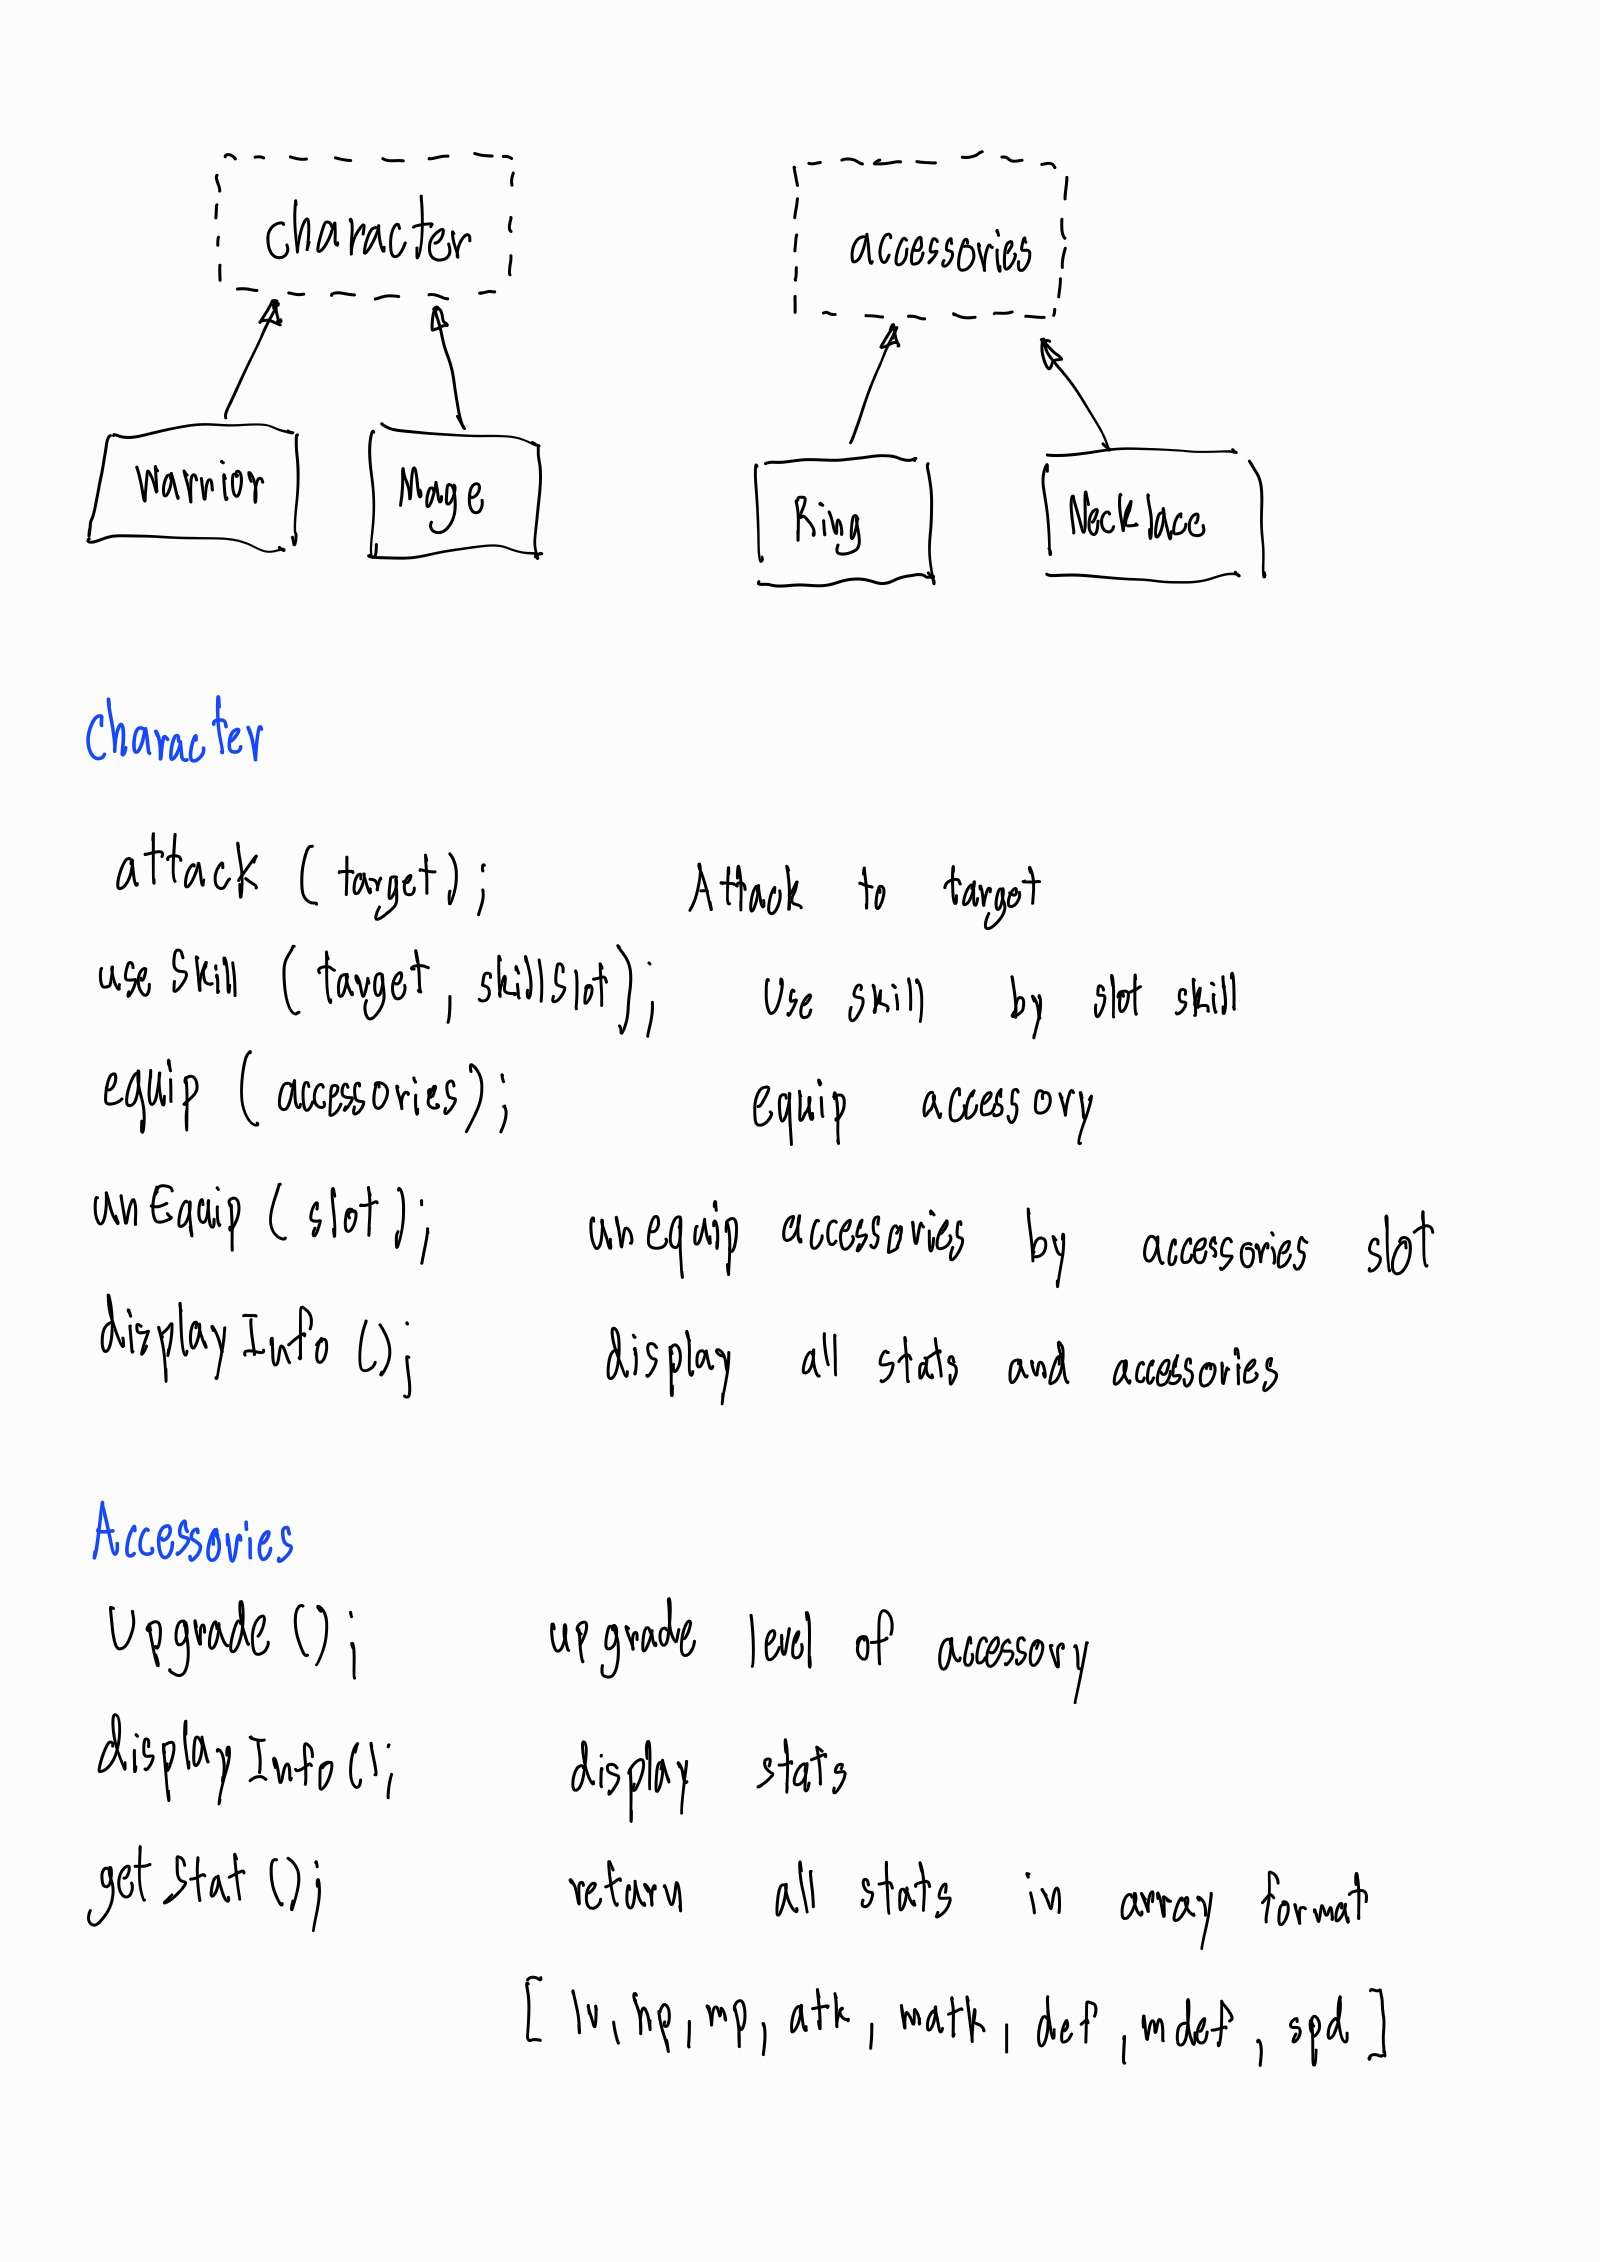 character accessories
Warrior Mage Ring Necklace
Character
attack (target); Attack to target
use Skill (target, skillSlot); Use skill by slot skill
equip (accessories); equip accessory
unEquip (slot); unequip accessories by accessories slot
displayInfo (); display all stats and accessories
Accessories
Upgrade (); upgrade level of accessory
displayInfo(); display stats
getStat (); return all stats in array format
[ lv, hp, mp, atk, matk, def, mdef, spd ]